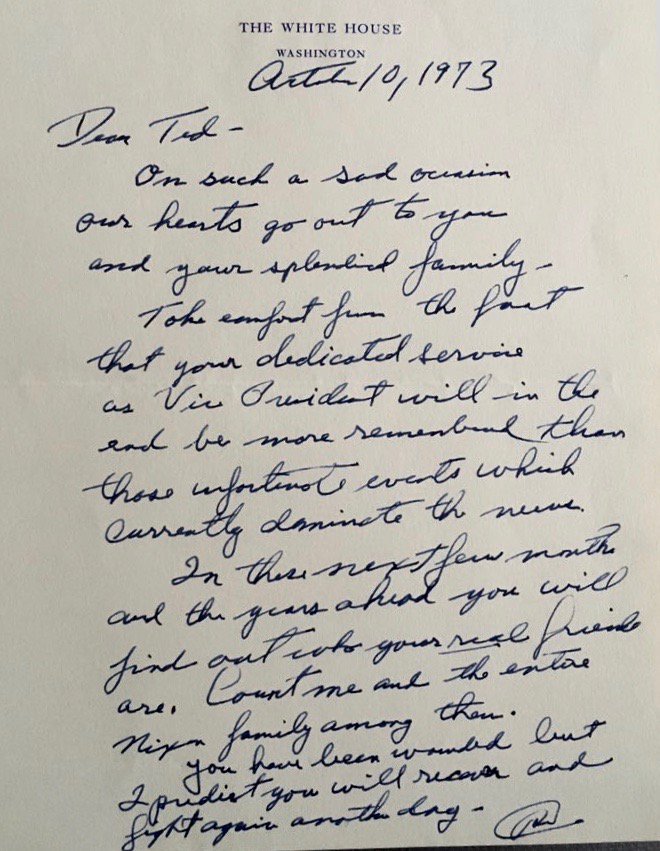 THE WHITE HOUSE
WASHINGTON
October 10, 1973
Dear Ted –
On such a sad occasion
our hearts go out to you
and your splendid family –
Take comfort from the fact
that your dedicated service
as Vice President will in the
end be more remembered than
those unfortunate events which
currently dominate the news.
In these next few months
and the years ahead you will
find out who your real friends
are. Count me and the entire
Nixon family among them.
You have been wounded but
I predict you will recover and
fight again another day –
RN